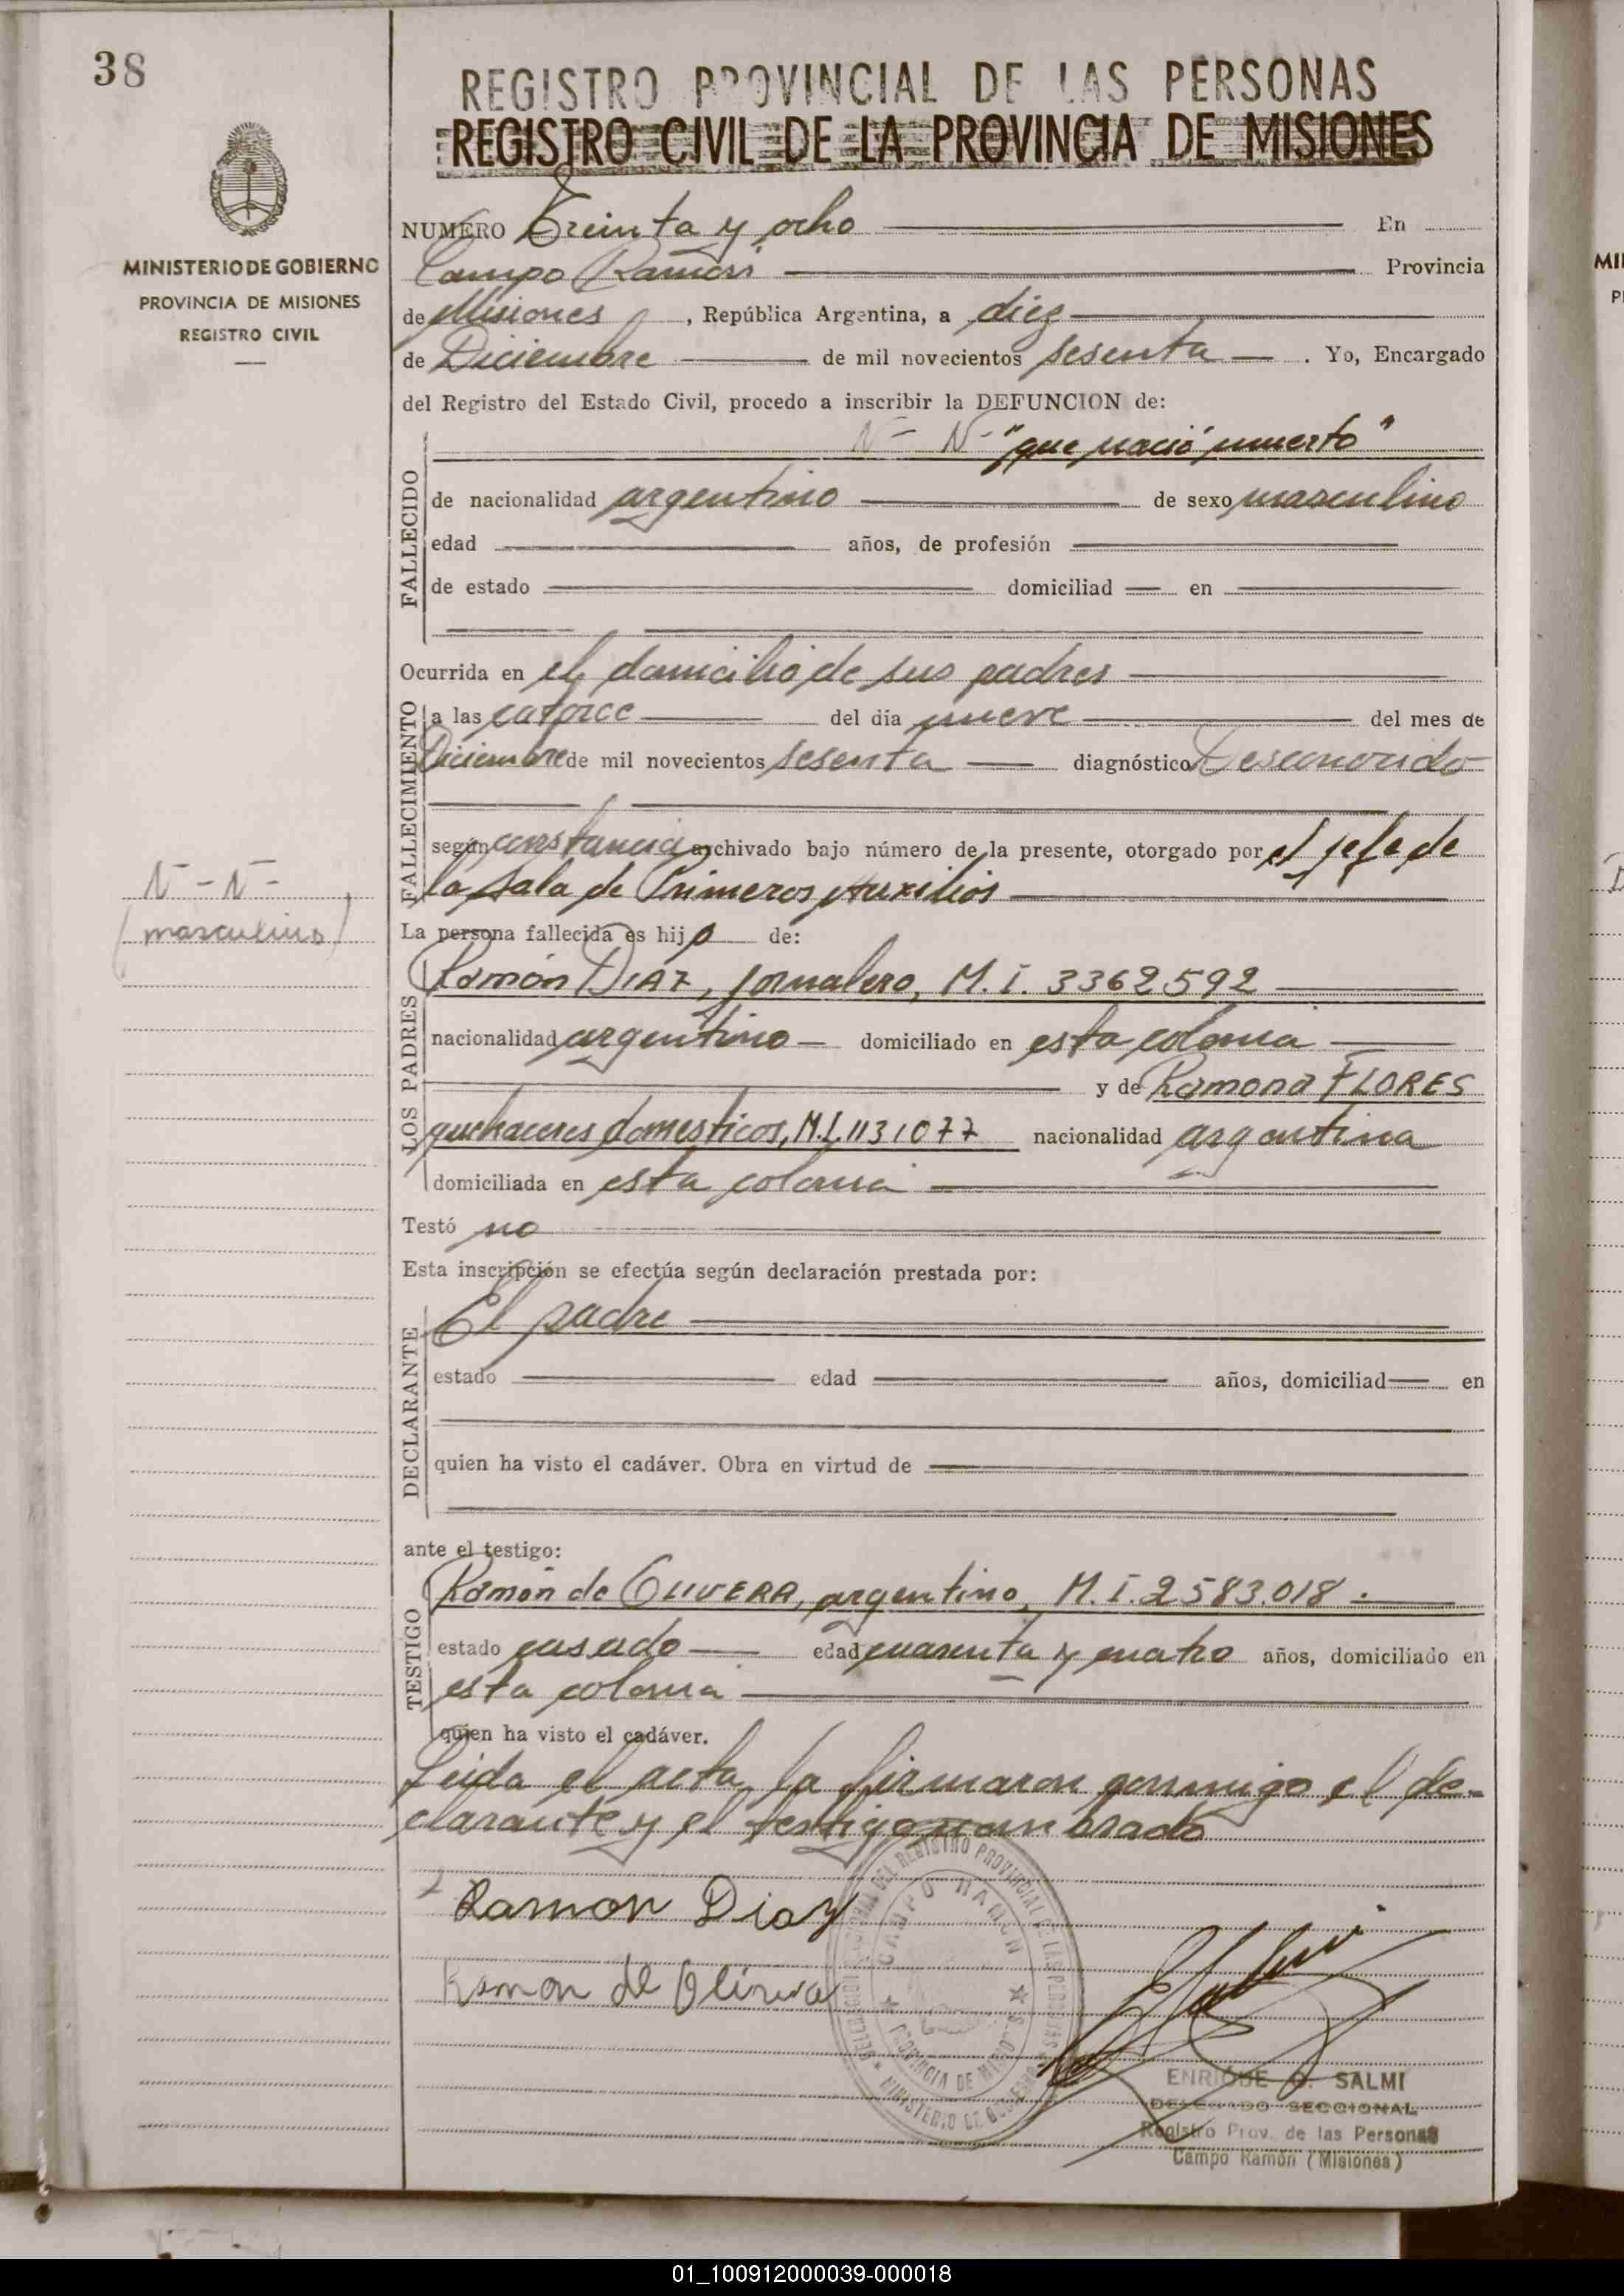 38
REGISTRO PROVINCIAL DE LAS PERSONAS
REGISTRO CIVIL DE LA PROVINCIA DE MISIONES
MINISTERIO DE GOBIERNO
PROVINCIA DE MISIONES
REGISTRO CIVIL
NUMERO Treinta y ocho En
Campo Ramón Provincia
de Misiones, República Argentina, a diez
de Diciembre de mil novecientos sesenta. Yo, Encargado
del Registro del Estado Civil, procedo a inscribir la DEFUNCION de:
N- N- "que nació muerto"
FALLECIDO
de nacionalidad argentino de sexo masculino
edad años, de profesión
de estado domiciliad en
Ocurrida en el domicilio de sus padres
FALLECIMIENTO
a las catorce del día nueve del mes de
Diciembre de mil novecientos sesenta diagnóstico Desconocido
según constancia archivado bajo número de la presente, otorgado por el jefe de
la Sala de Primeros Auxilios
N-N-
(masculino)
La persona fallecida es hijo de:
LOS PADRES
Ramón DIAZ, jornalero, M.I. 3362592
nacionalidad argentino domiciliado en esta colonia
y de Ramona FLORES
quehaceres domesticos, M.I. 1131077 nacionalidad argentina
domiciliada en esta colonia
Testó no
Esta inscripción se efectúa según declaración prestada por:
DECLARANTE
El padre
estado edad años, domiciliad en
quien ha visto el cadáver. Obra en virtud de
ante el testigo:
TESTIGO
Ramón de OLIVERA, argentino, M.I. 2583.018.
estado casado edad cuarenta y cuatro años, domiciliado en
esta colonia
quien ha visto el cadáver.
Leida el acta, la firmaron conmigo el de-
clarante y el testigo nombrado
Ramon Diaz
Ramon de Olivera
DEL REGISTRO PROVINCIAL DE LAS PERSONAS
CAMPO RAMON
PROVINCIA DE MISIONES
MINISTERIO DE GOBIERNO
ENRIQUE SALMI
DELEGADO SECCIONAL
Registro Prov. de las Personas
Campo Ramón (Misiones)
01_100912000039-000018